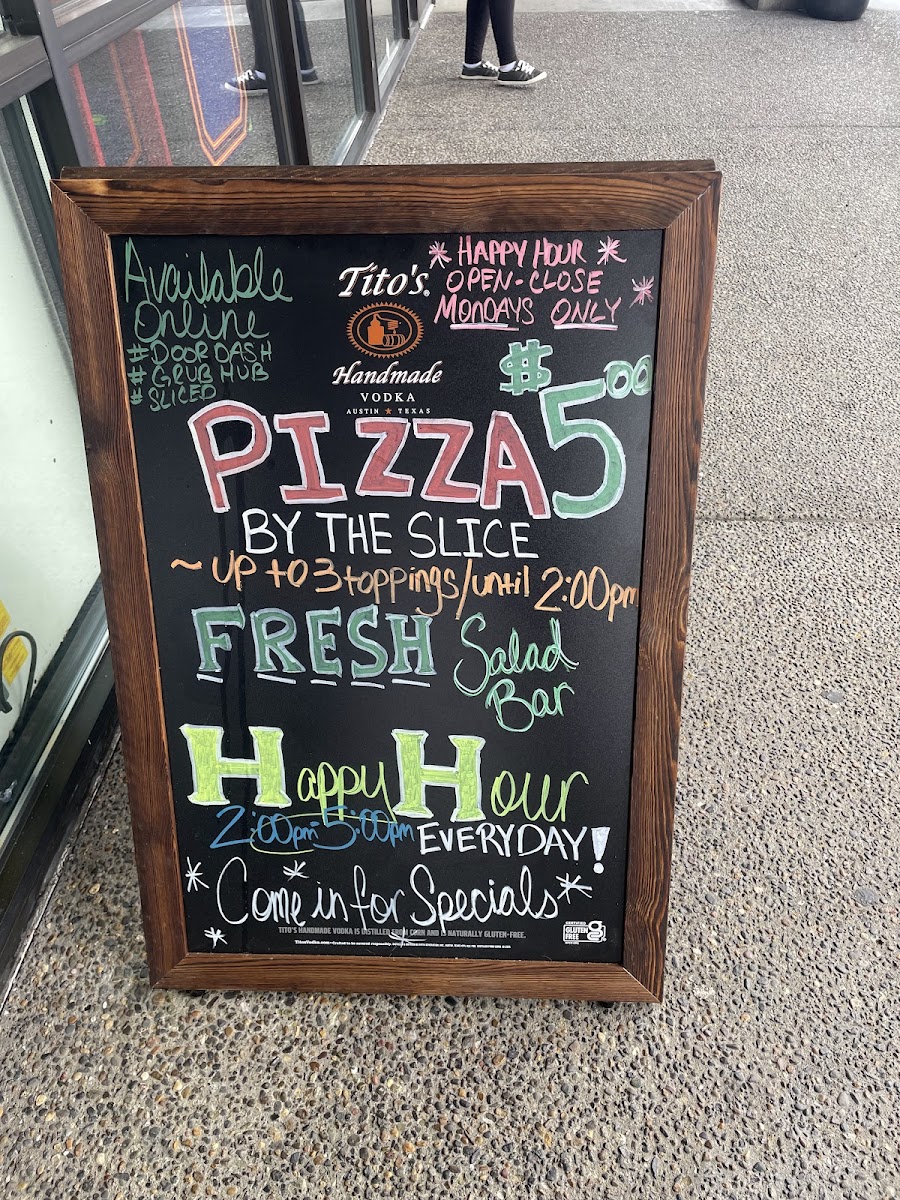 Available
Online
#DOORDASH
#GRUBHUB
#SLICED
Tito's®
Handmade
VODKA
AUSTIN ★ TEXAS
*HAPPY HOUR*
OPEN-CLOSE
MONDAYS ONLY*
PIZZA $5.00
BY THE SLICE
~UP to 3 toppings/until 2:00pm
FRESH Salad
Bar
Happy Hour
2:00pm-5:00pm EVERYDAY!
*Come in for Specials*
TITO'S HANDMADE VODKA IS DISTILLED FROM CORN AND IS NATURALLY GLUTEN-FREE.
CERTIFIED
GLUTEN
FREE